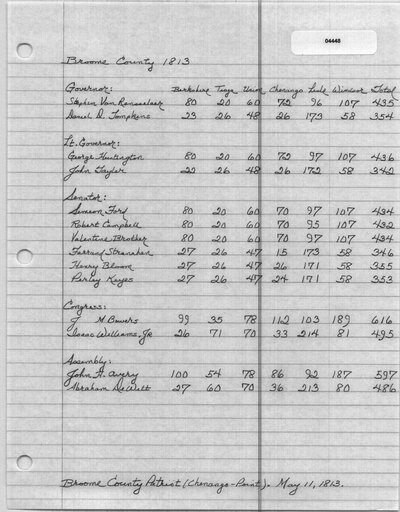 04448
Broome County 1813
Governor: Berkshire Tioga Union Chenango Lisle Windsor Total
Stephen Van Rensselaer 80 20 60 72 96 107 435
Daniel D. Tompkins 23 26 48 26 173 58 354
Lt. Governor:
George Huntington 80 20 60 72 97 107 436
John Tayler 22 26 48 26 172 58 342
Senator:
Simeon Ford 80 20 60 70 97 107 434
Robert Campbell 80 20 60 70 95 107 432
Valentine Brother 80 20 60 70 97 107 434
Farrand Stranahan 27 26 47 15 173 58 346
Henry Bloom 27 26 47 26 171 58 355
Perley Keyes 27 26 47 24 171 58 353
Congress:
J. M. Bowers 99 35 78 112 103 189 616
Isaac Williams, Jr 26 71 70 33 214 81 495
Assembly:
John H. Avery 100 54 78 86 92 187 597
Abraham DeWitt 27 60 70 36 213 80 486
Broome County Patriot (Chenango-Point). May 11, 1813.